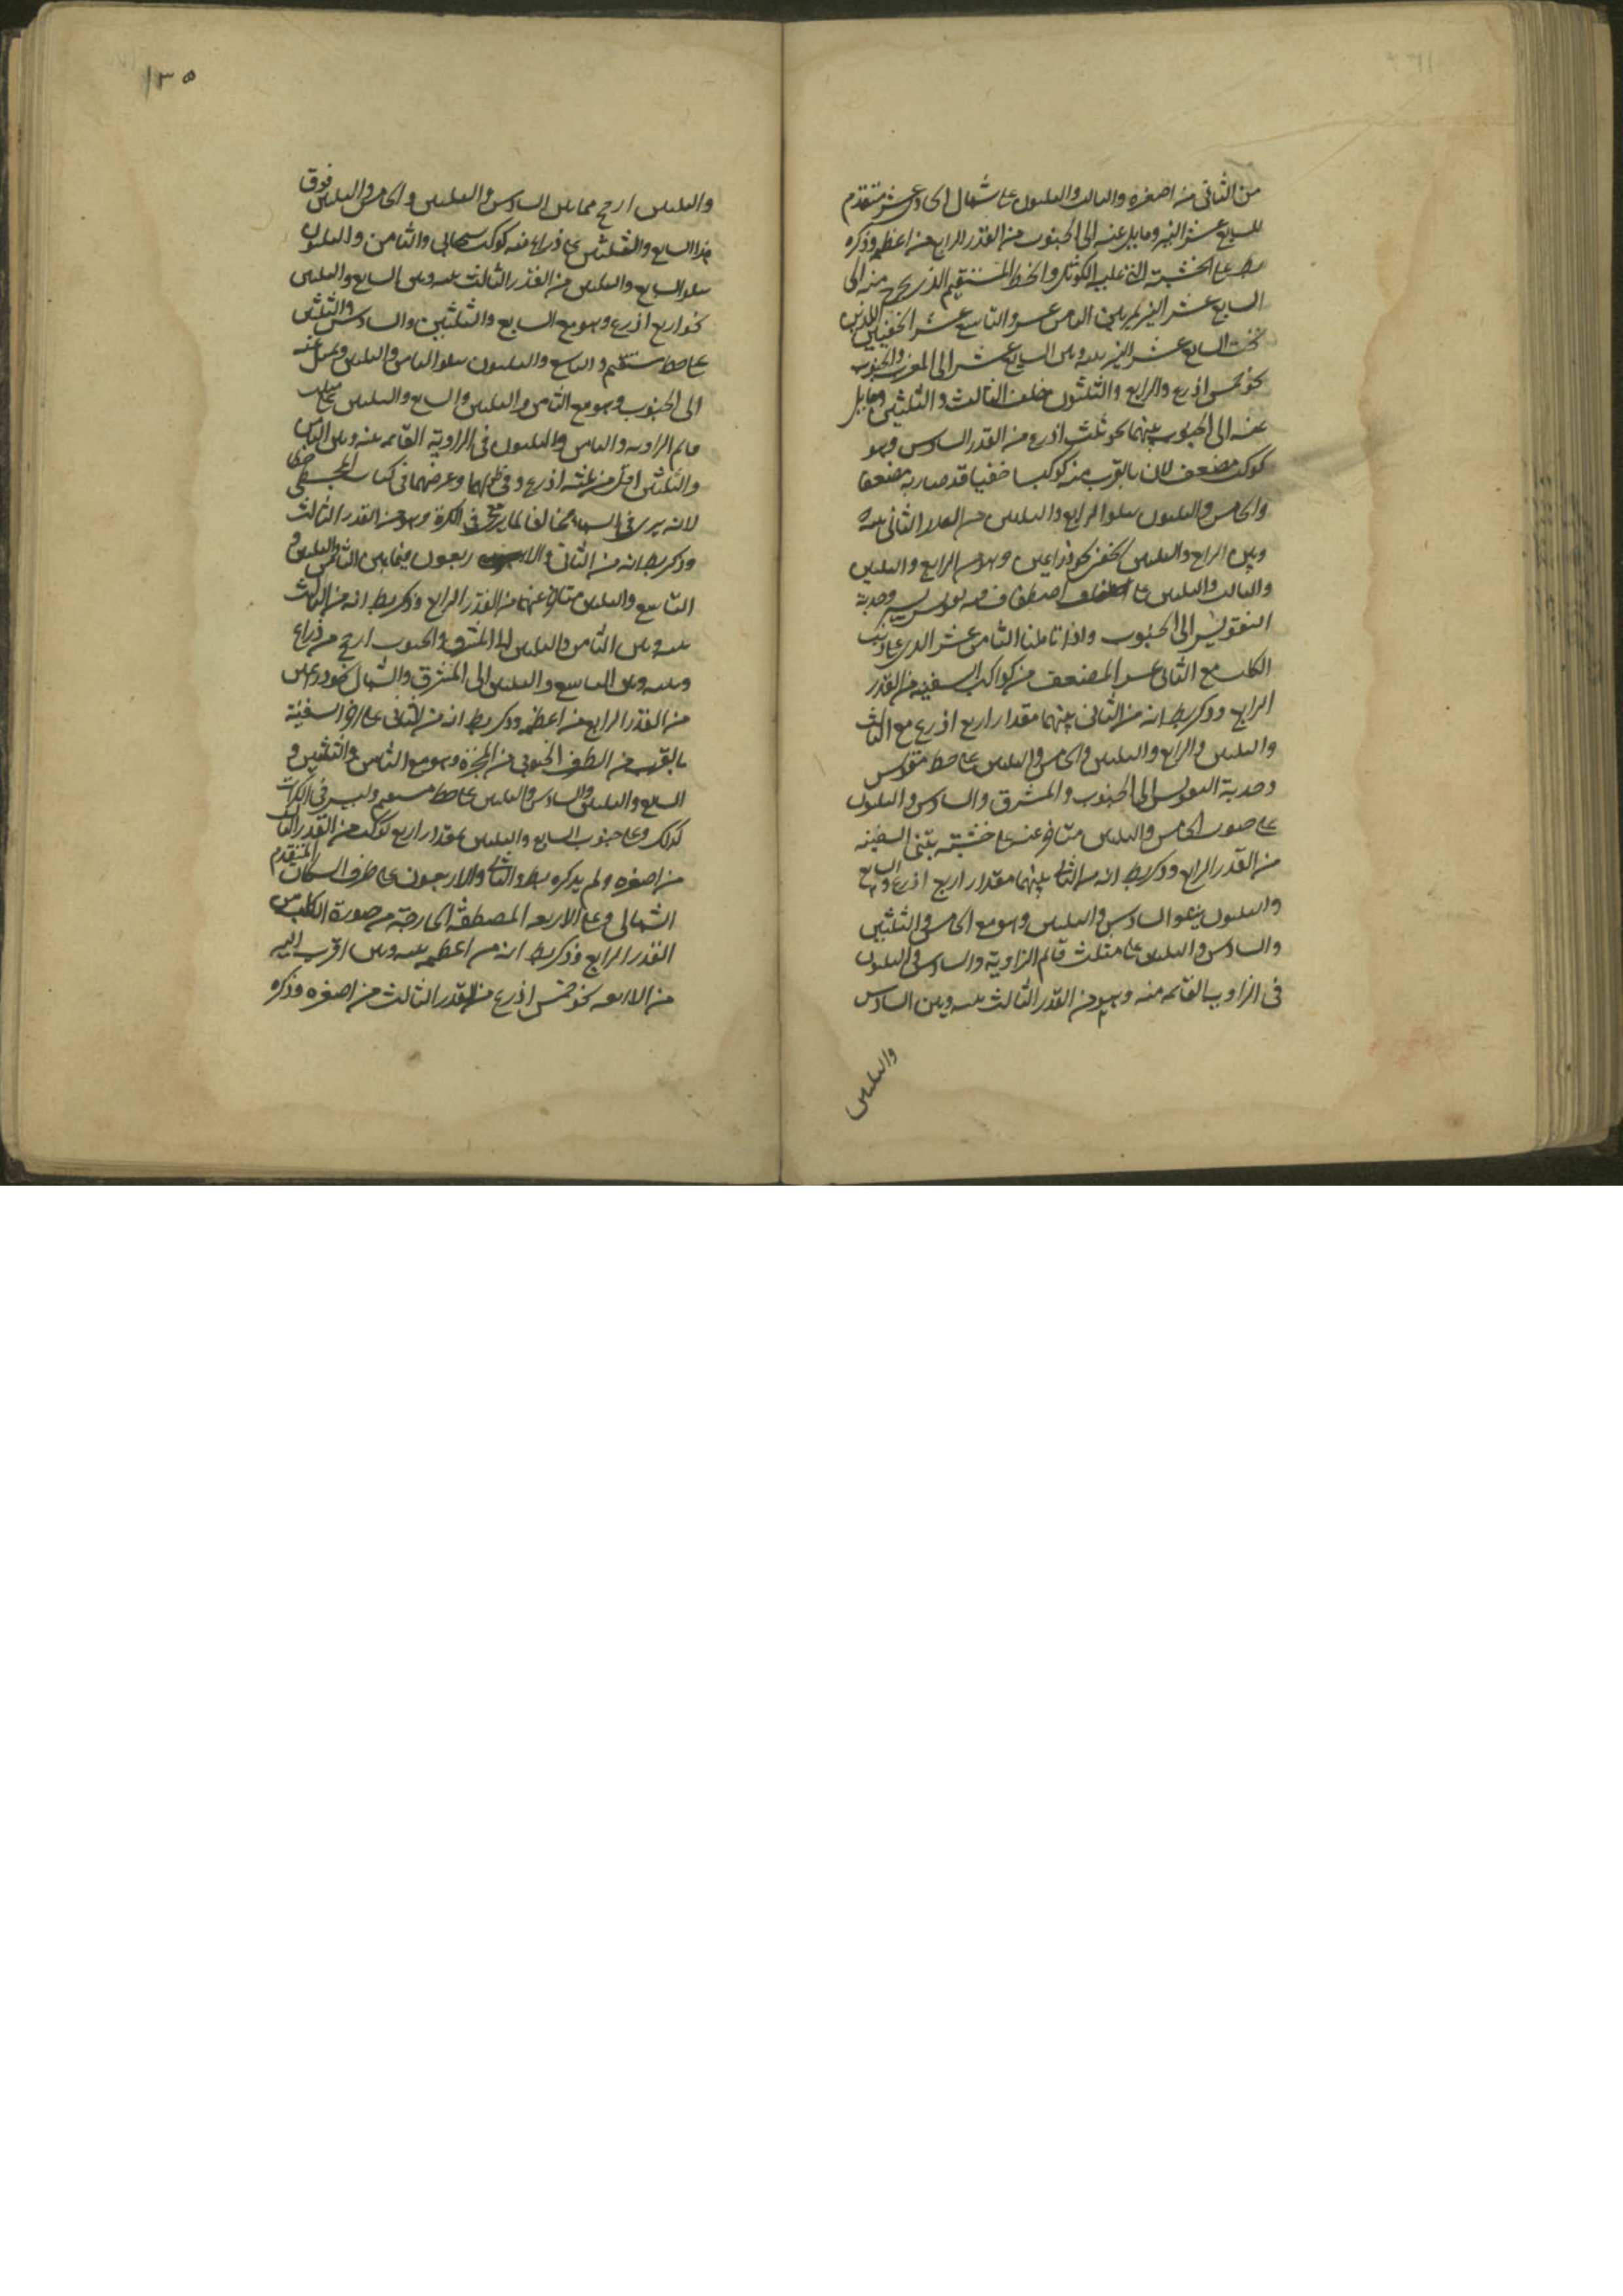 من الثاني من اصغره والثالث والثلثون على شمال الحادي عشر متقدم
للسابع عشر النير ومايل عنه الى الجنوب من القدر الرابع من اعظمه وذكره
بط على الخشبة التي عليها الكوثل والخط المستقيم الذي يخرج منه الى
السابع عشر النير يمر بين الثامن عشر والتاسع عشر الخفيين اللذين
تحت السابع عشر النير بينه وبين السابع عشر الى المغرب والجنوب
نحو خمس اذرع والرابع والثلثون خلف الثالث والثلثين ومايل
عنه الى الجنوب بينهما نحو ثلث اذرع من القدر السادس وهو
كوكب مضعف لان بالقرب منه كوكبا خفيا قد صار به مضعفا
والخامس والثلثون يتلو الرابع والثلثين من القدر الثاني بينه
وبين الرابع والثلثين نحو ذراعين وهو مع الرابع والثلثين
والثالث والثلثين على اصطفاف فيه تقويس يسير وحدبة
التقويس الى الجنوب واذا تاملنا الثامن عشر الذي على ذنب
الكلب مع الثاني عشر المضعف من كواكب السفينة من القدر
الرابع وذكر بط انه من الثاني بينهما مقدار اربع اذرع مع الثالث
والثلثين والرابع والثلثين والخامس والثلثين على خط مقوس
وحدبة التقويس الى الجنوب والمشرق والسادس والثلثون
على جنوب الخامس والثلثين متاخر عنه على خشبة السفينة
من القدر الرابع وذكر بط انه من الثالث بينهما مقدار اربع اذرع والسابع
والثلثون يتلو السادس والثلثين وهو مع الخامس والثلثين
والسادس والثلثين على مثلث قائم الزاوية والسادس والثلثون
في الزاوية القائمة منه وهو من القدر الثالث بينه وبين السادس
والثلثين
١٣٥
والثلثين ارجح مما بين السادس والثلثين والخامس والثلثين فوق
هذا السابع والثلثين على ذراع منه كوكب سحابي والثامن والثلثون
يتلو السابع والثلثين من القدر الثالث بينه وبين السابع والثلثين
نحو اربع اذرع وهو مع السابع والثلثين والسادس والثلثين
على خط مستقيم والتاسع والثلثون يتلو الثامن والثلثين ويميل عنه
الى الجنوب وهو مع الثامن والثلثين والسابع والثلثين على مثلث
قائم الزاوية والثامن والثلثون في الزاوية القائمة بينه وبين الثامن
والثلثين اقل من ثلثة اذرع وفي طولهما وعرضهما في كتاب المجسطي خطا
لانه يرى في السماء مخالفا لما يرى في الكرة وهو من القدر الثالث
وذكر بط انه من الثاني والاربعون فيما بين الثامن والثلثين و
التاسع والثلثين متاخر عنهما من القدر الرابع وذكر بط انه من الثالث
بينه وبين الثامن والثلثين الى المشرق والجنوب ارجح من ذراع
وبينه وبين التاسع والثلثين الى المشرق والشمال نحو ذراعين
من القدر الرابع من اعظمه وذكر بط انه من الثاني على السفينة
بالقرب من الطرف الجنوبي من المجرة وهو مع الثامن والثلثين و
السابع والثلثين والسادس والثلثين على خط مستقيم وليس في الكرات
كذلك وعلى جنوب السابع والثلثين بمقدار اربع كوكب من القدر الثالث
من اصغره ولم يذكره بط والثالث والاربعون على طرف السكان المتقدم
الشمالي وعلى الاربعة المصطفة الخارجة من صورة الكلب من
القدر الرابع وذكر بط انه من اعظمه بينه وبين اقرب اليه
من الاربعة نحو خمس اذرع من القدر الثالث من اصغره وذكره